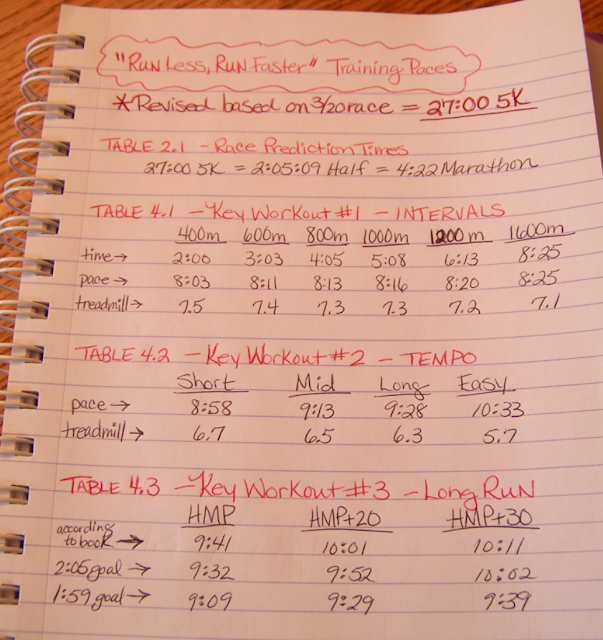 "Run Less, Run Faster" Training Paces
*Revised based on 3/20 race = 27:00 5K
TABLE 2.1 - Race Prediction Times
27:00 5K = 2:05:09 Half = 4:22 Marathon
TABLE 4.1 - Key Workout #1 - INTERVALS
400m 600m 800m 1000m 1200m 1600m
time→ 2:00 3:03 4:05 5:08 6:13 8:25
pace→ 8:03 8:11 8:13 8:16 8:20 8:25
treadmill→ 7.5 7.4 7.3 7.3 7.2 7.1
TABLE 4.2 - Key Workout #2 - TEMPO
Short Mid Long Easy
pace→ 8:58 9:13 9:28 10:33
treadmill→ 6.7 6.5 6.3 5.7
TABLE 4.3 - Key Workout #3 - Long Run
HMP HMP+20 HMP+30
according
to book→ 9:41 10:01 10:11
2:05 goal→ 9:32 9:52 10:02
1:59 goal→ 9:09 9:29 9:39